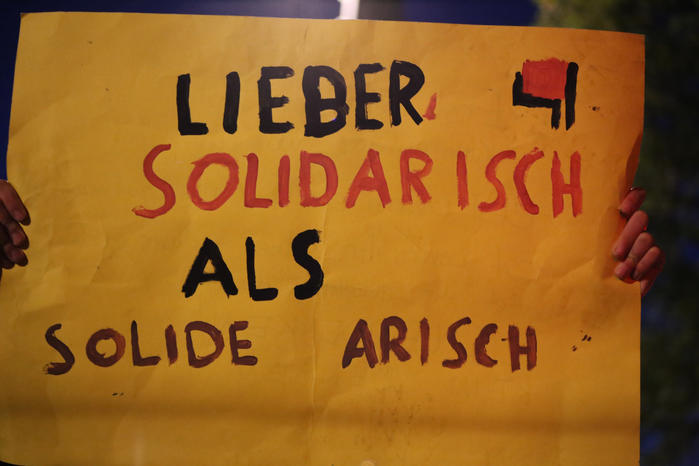 LIEBER
SOLIDARISCH
ALS
SOLIDE ARISCH